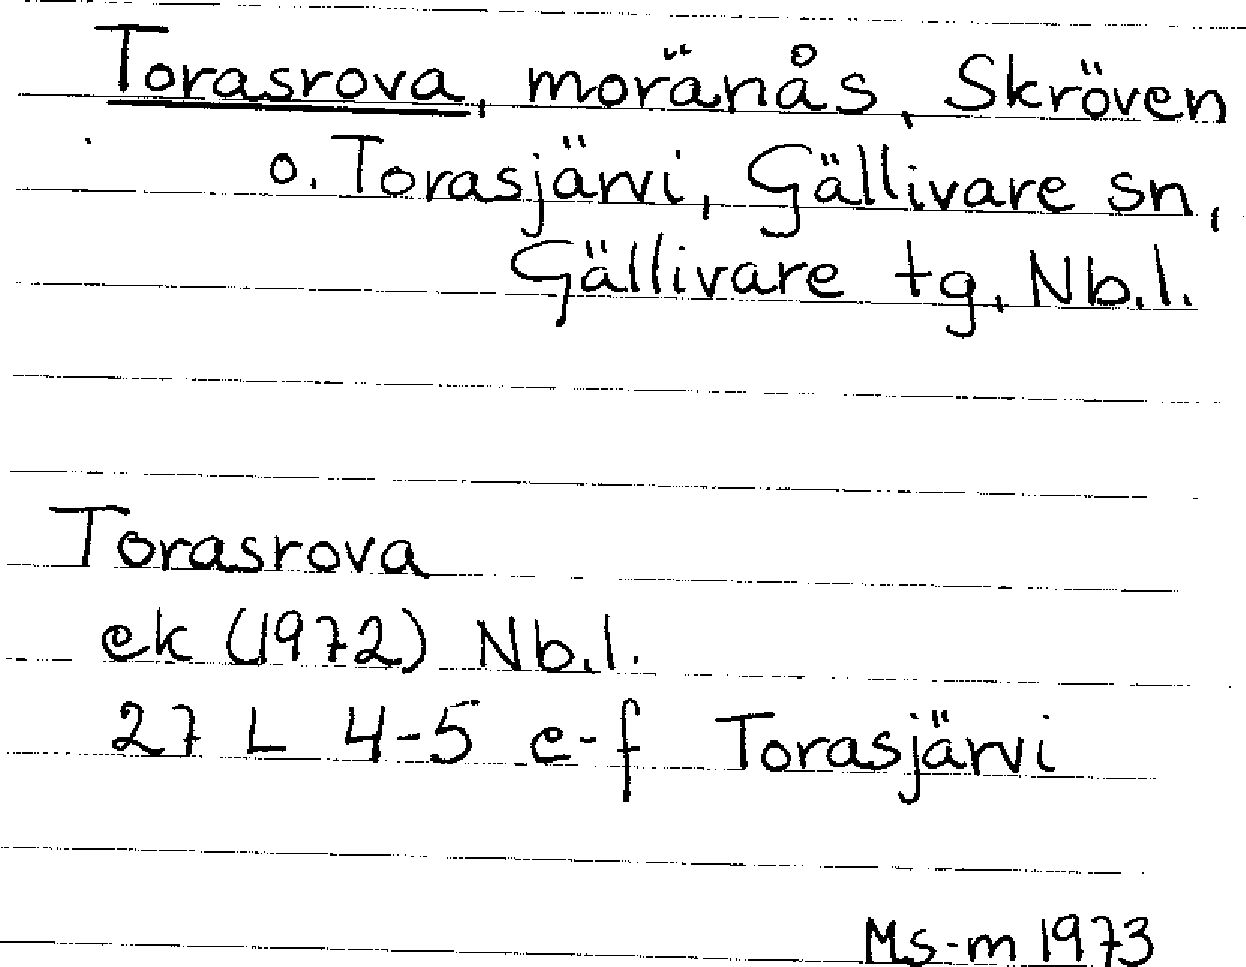 Torasrova, moränås, Skröven
o. Torasjärvi, Gällivare sn,
Gällivare tg, Nb.l.
Torasrova
ek (1972) Nb.l.
27 L 4-5 e-f Torasjärvi
Ms-m 1973